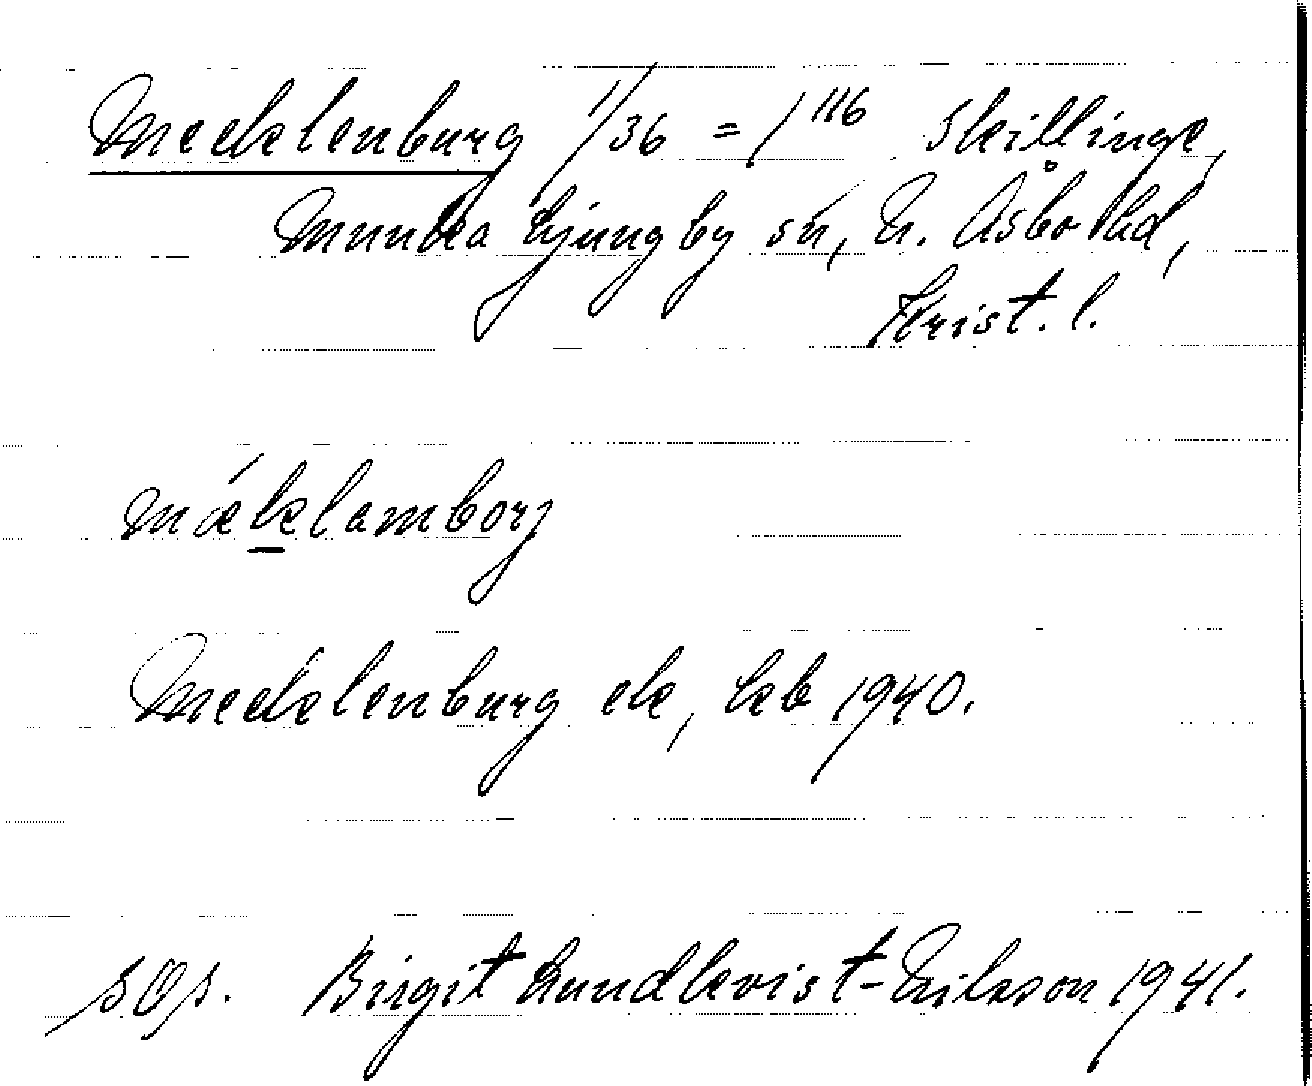 Mecklenburg 1/36 = 1¹¹⁶ Skillinge,
Munka Ljungby sn, N. Åsbo hd,
Krist. l.
mǽklamborg
Mecklenburg ek, kb 1940.
sOs. Birgit Lundkvist-Nilsson 1941.